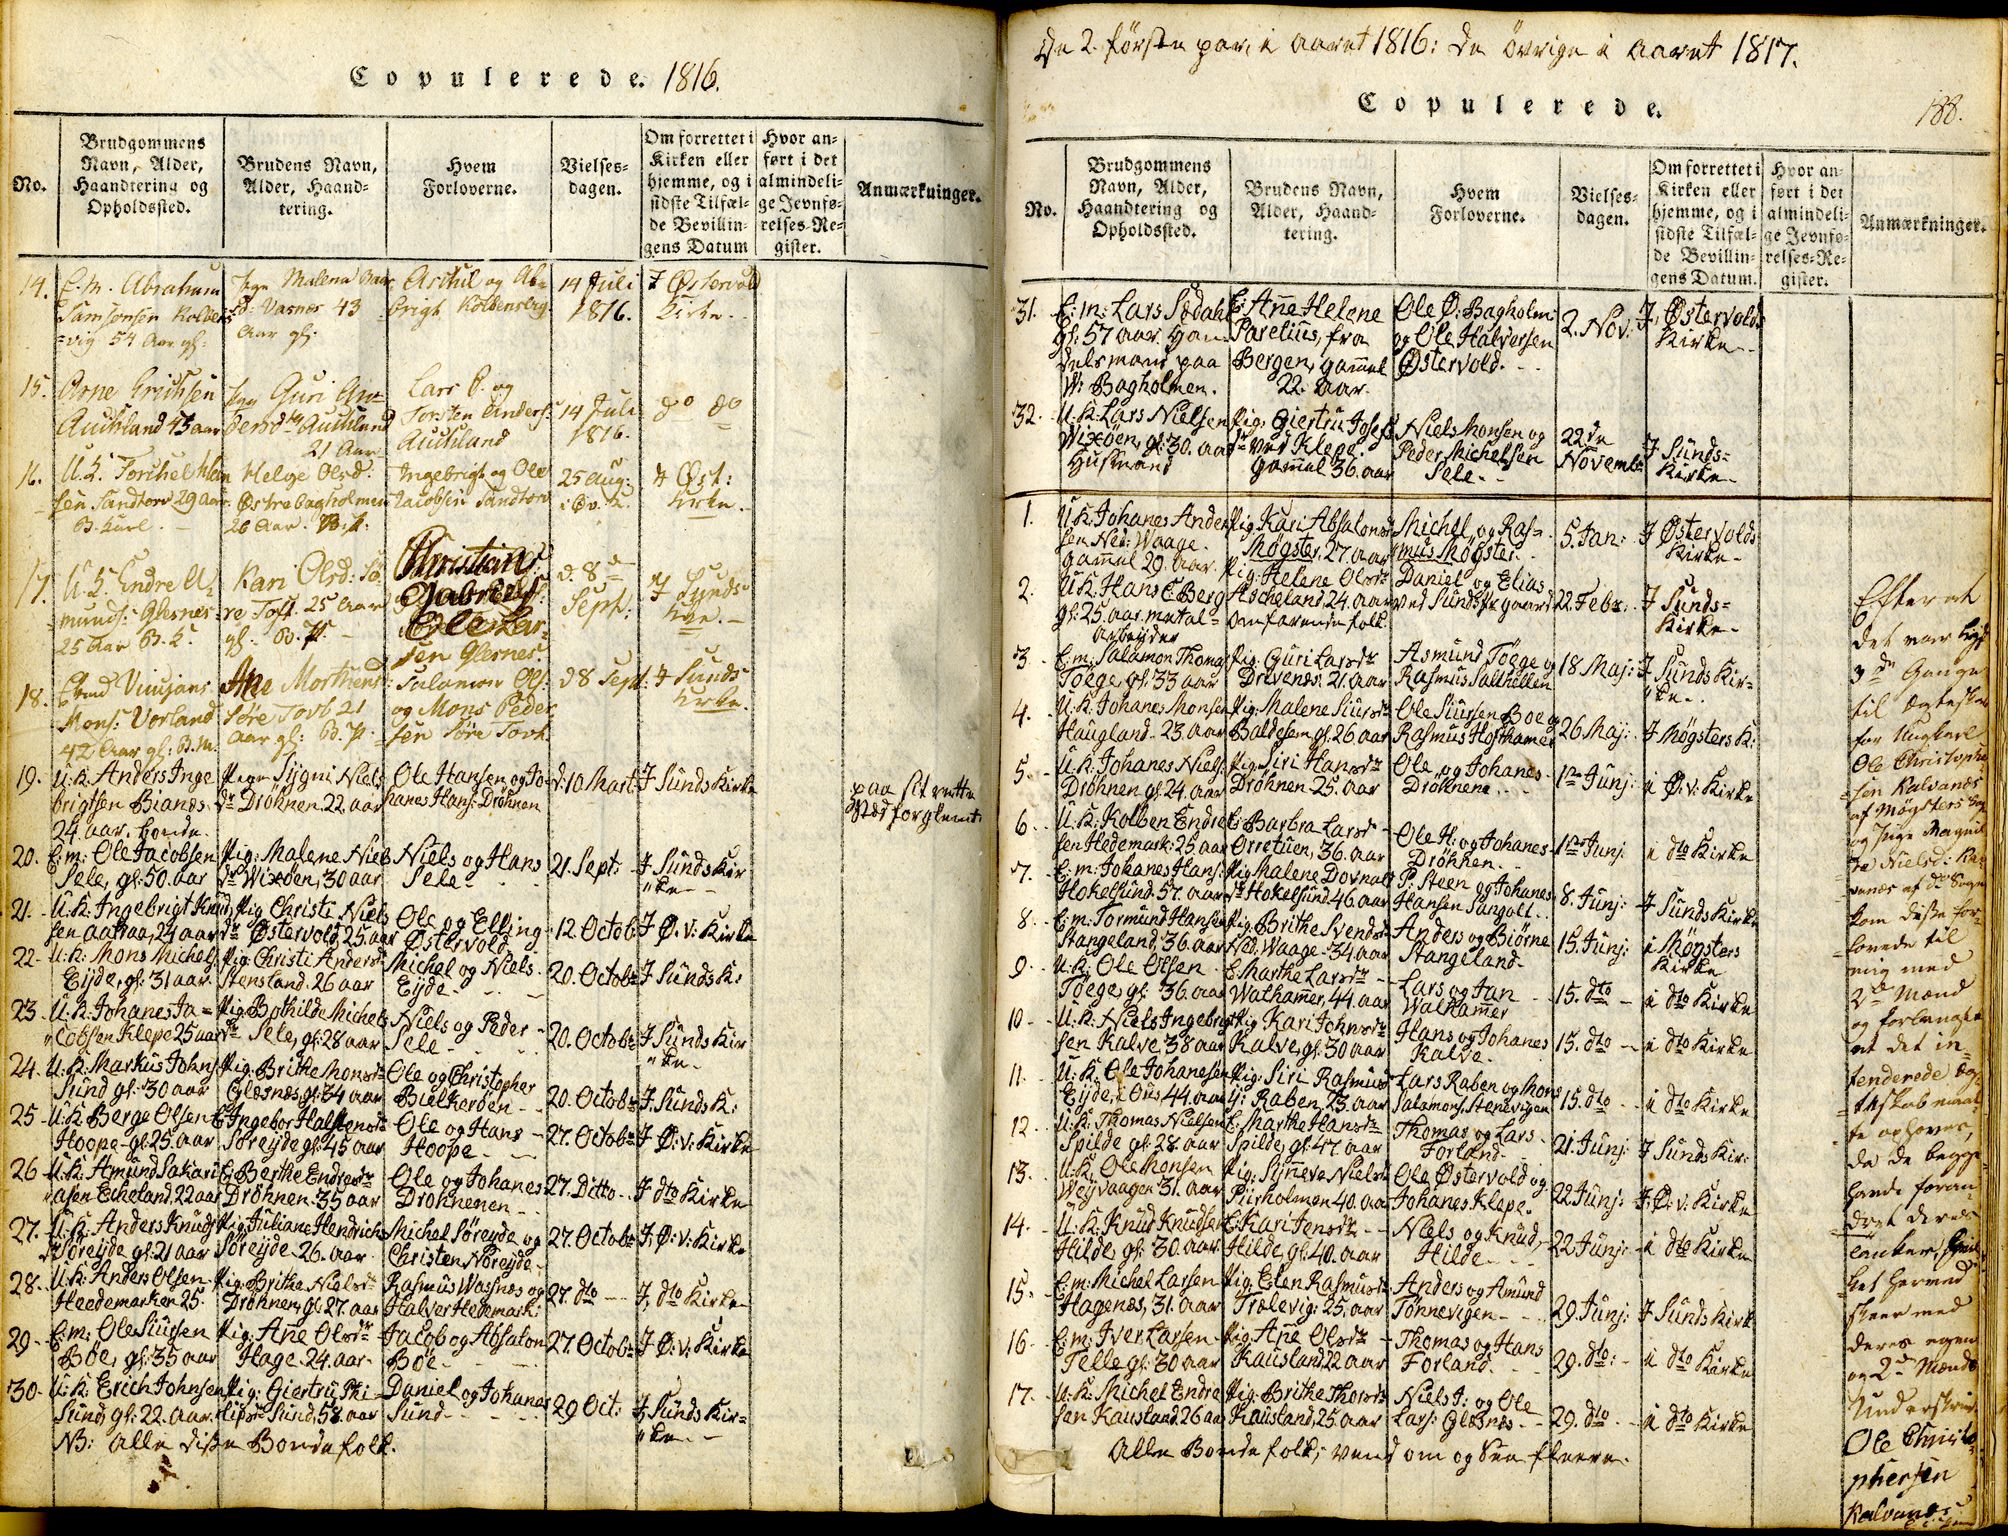 Copulerede. 1816.
No.
Brudgommens
Navn, Alder,
Haandtering og
Opholdssted.
Brudens Navn,
Alder, Haand-
tering.
Hvem
Forloverne.
Vielses-
dagen.
Om forrettet i
Kirken eller
hjemme, og i
sidste Tilfæl-
de Bevillin-
gens Datum
Hvor an-
ført i det
almindeli-
ge Jevnfø-
relses-Re-
gister.
Anmærkninger.
14.
E. m. Abraham
Samsonsen Kolbens
-vig 54 Aar gl:
Malena
Vasnes 43
Aar gl:
og Abr
brigt Koldensvig.
14 Juli
1816.
I Østervold
Kirke.
15.
Arne Erichsen
Auchland 43 aar
Guri An-
dersdtr Auchland
21 Aar
Lars O. og
Torsten Anders:
Auchland
14 Juli
1816.
do do
16.
U. K. Torchel
sen Sandtorv 29 Aar.
B. Karl.
Helge Olsd:
Østre Bagholmen
26 Aar. B. P.
Ingebrigt og Ole
Jacobsen Sandtorv
25 Aug:
i Øv. K.
I Øst:
Kirke.
17.
U. K. Endre A-
munds: Glesnes
25 Aar B. K.
Kari Olsd: Sø-
re Toft 25 Aar
gl. B. P.
Christian
Gabriels:
Ole Lar-
sen Glesnes.
d: 8de
Sept:
I Sunds
Kirke.
18.
Mons: Vorland
42 Aar gl: B. M.
Ane Morthens
Søre Torb 21
Aar gl: B. P.
Salamon Ols:
og Mons Peder
sen Søre Torb.
d 8 Sept:
I Sunds
Kirke.
19.
U. K. Anders Inge
brigtsen Bianæs.
24 aar. bonde.
Pige Sygni Niels
dr Drøhnen. 22 aar
Ole Hansen og Jo-
hanes Hans: Drøhnen
d: 10 Mart:
I Sunds Kirke
paa sit rette
Stæd forglemt.
20.
E: m: Ole Jacobsen
Sele, gl: 50. aar
Pig: Malene Niels
dr Wixøen, 30 aar
Niels og Hans
Sele
21. Sept:
I Sunds Kir
"ke
21.
U: K: Ingebrigt Knud
sen Aakraa, 24 aar
Pig Christi Niels
dr Østervold, 25. aar
Ole og Elling
Østervold
12. Octob:
I Ø. v: Kirke
22.
U: K: Mons Michels
Eijde, gl: 31 aar.
Pig: Christi Andersd
Stensland. 26 aar
Michel og Niels
Eijde
20. Octobr
I Sunds K:
23.
U: K: Johanes Ja=
"cobsen Klepe 25 aar
Pig: Bothilde Michels
dr Sele, gl: 28 aar
Niels og Peder
Sele
20. Octobr
I Sunds Kir
"ke.
24.
U: K: Markus Johns
Sund gl: 30 aar
Pig. Brithe Monsdr
Glesnæs, gl: 34 aar
Ole og Christopher
Bielkerøen
20. Octobr
I Sunds K:
25
U: K Berge Olsen
Hoope gl: 25. aar
E Ingebor Halstensdr
Søreyde gl: 45 aar
Ole og Hans
Hoope
27. Octobr
I Ø: v: Kirke
26
U: K: Amund Sakari
asen Echeland. 22 aar
E: Berthe Endresdr
Drøhnen. 35 aar
Ole og Johanes
Drøhnenen
27. Ditto
I dto Kirke
27.
U: K: Anders Knuds
Søreijde gl: 21 aar
Pig. Juliane Hendrichs
Søreijde. 26. aar
Michel Søreyde og
Christen Nøreyde
27. Octobr
I: Ø: v: Kirke
28.
U: K: Anders Olsen
Heedemarken 25.
Pig: Brithe Nielsdr
Drøhnen, gl: 27. aar
Rasmus Wassnæs og
Halver Hedemark:
27. dto
I, dto Kirke
29
E: m: Ole Siursen
Bøe, gl: 35 aar
Pig: Ane Olsdr
Hage. 24. aar
Jacob og Absalon
Bøe
27. Octobr
I Ø: v: Kirke
30.
U: K: Erich Johnsen
Sund, gl: 22. aar.
Pig: Giertru Phi
lipsdr Sund, 58. aar
Daniel og Johanes
Sund
29 Oct:
I Sunds Kir=
"ke.
NB: Alle disse Bondefolk.
De 2. første par, i Aaret 1816: de øvrige i Aaret 1817.
Copulerede.
188.
No.
Brudgommens
Navn, Alder,
Haandtering og
Opholdssted.
Brudens Navn,
Alder, Haand-
tering.
Hvem
Forloverne.
Vielses-
dagen.
Om forrettet i
Kirken eller
hjemme, og i
sidste Tilfæl-
de Bevillin-
gens Datum.
Hvor an-
ført i det
almindeli-
ge Jevnfø-
relses-Re-
gister.
Anmærkninger.
31.
E: m: Lars Sødahl
gl: 57 aar. Han-
delsmand paa
W: Bagholmen.
E: Ane Helene
Parelius, fra
Bergen, gamel
22. aar.
Ole Ø: Bagholm:
og Ole Halversen
Østervold.
2. Nov:
I, Østervolds
Kirke
32.
U: K: Lars Nielsen
Wixøen, gl: 30. aar
Husmand
Pig: Giertru Josefs
dr ved Klepe.
gamel 36. aar
Niels Monsen og
Peder Michelsen
Sele.
22de
Novembr
I Sunds=
Kirke
1.
U K: Johanes Ander
sen Ned: Waage.
gamel 29. aar.
Pig: Kari Absalonsd
Møgster, 27. aar
Michel, og Ras=
mus Møgster
5. Jan:
I Østervolds
Kirke
2.
U K: Hans C. Berg
gl: 25. aar metal=
arbejder
Pig: Helene Olsdr
Ascheland. 24. aar
Omfarende folk.
Daniel og Elias
ved Sunds Pr. gaard
22. Febr:
I Sunds=
Kirke
3.
E: m: Salamon Thomas
Toege, gl: 33 aar
Pig: Guri Larsdr
Drivenæs: 21. aar
Asmund Toege og
Rasmus Salthellen
18 Maj:
I Sunds Kir=
"ke.
4.
U. K: Johanes Monsen
Haugland. 23 aar
Pig: Malene Siursdr
Baldesem, gl: 26. aar
Ole Siursen Boe og
Rasmus Hofthamer
26 Maj:
I Møgsters K:
5.
U: K: Johanes Niels:
Drøhnen gl: 24. aar
Pig: Siri Hansdr
Drøhnen. 25. aar
Ole, og Johanes
Drøhnene
1ste Junj:
i Ø: v: Kirke
6.
U: K: Kolben Endre
sen Hedemark: 25 aar
E: Barbra Larsdr
Orretuen, 36. aar
Ole H: og Johanes
Drøhnen.
1ste Junj:
i dto Kirke
7.
E: m: Johanes Hans:
Hokelsund. 57. aar
Pig: Malene Dovnals
dr Hokelsund 46. aar
P: Steen og Johanes
Hansen Sangolt
8. Junj:
I Sunds Kirke
8.
E: m: Tormund Hansen
Stangeland, 36. aar
Pig: Brithe Svendsd
Ned. Waage. 34. aar
Anders og Biørne
Stangeland
15. Junj:
i Møgsters
Kirke
9.
U. K: Ole Olsen
Toege, gl: 36. aar
E. Marthe Larsdr
Walhamer, 44. aar
Lars og Jan
Walhamer
15. dto
i dto Kirke
10.
U: K: Niels Ingebrigt
sen Kalve 38 aar
Pig Kari Johnsdr
Kalve, gl: 30 aar
Hans og Johanes
Kalve
15. dto
i dto Kirke
11.
U: K: Ole Johanesen
Eijde, i Ous 44. aar
Pig: Siri Rasmusd
ij: Raben, 23. aar
Lars Raben og Mons
Salamons. Stenevigen
15. dto
i dto Kirke
12.
U: K: Thomas Nielsen
Spilde gl: 28. aar
E. Marthe Hansdr
Spilde, gl: 47. aar
Thomas og Lars
Forland
21. Junj:
I Sunds Kir:
13.
U: K: Ole Monsen
Weyvaagen 31. aar
Pig: Synneva Nielsd
Piirholmen 40. aar
Ole Østervold og
Johanes Klepe.
22. Junj:
I: Ø: v: Kirke
14.
U: K: Knud Knudsen
Hilde, gl: 30. aar
E: Kari Jensdr
Hilde, gl: 40. aar
Niels og Knud,
Hilde
22 Junj:
i dto Kirke
15.
E: m: Michel Larsen
Hagenæs, 31. aar
Pig: Elen Rasmusd
Trælevig: 25. aar
Anders og Amund
Tønnevigen
29. Junj:
I Sunds Kirk
16
E: m: Iver Larsen
Telle gl: 30 aar
Pig: Ane Olsdr
Kausland 22 aar
Thomas og Hans
Forland.
29. dto:
i dto Kirke
17.
U: K: Michel Endre
sen Kausland. 26 aar
Pig: Brithe Thorsd
Kausland, 25. aar
Niels J: og Ole
Lars: Glesnes
29. dto
i dto Kirke
Alle Bondefolk; vend om og See fleere.
Efter at
det var
3de Gange
til
for Ungkarl
Ole Christophe
sen Kalvanæs
af Møgsters Sog
og Pige Magnil
Nielsd: Kal
vanæs af do Sogn
kom disse for-
lovede til
mig med
2de Mænd
og forlangte
at det in-
tenderede Eg-
teskab maat-
te ophæves,
da de begge
havde foran-
dret deres
tanker,
ket herved
skeer med
deres egen
og 2de Mænds
Underskriv
Ole Christo
phersen
Kalvanes